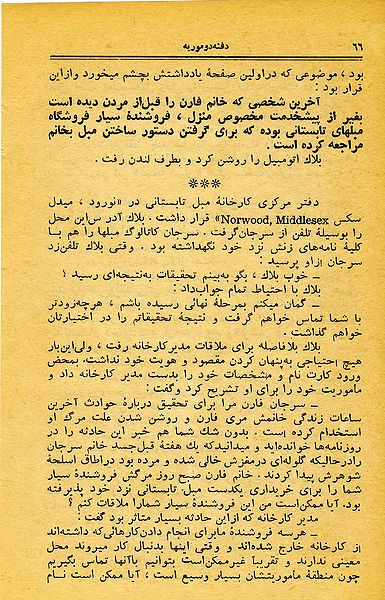 ۶۶
دفنه دوموریه
بود ، موضوعی که دراولین صفحهٔ یادداشتش بچشم میخورد وازاین
قرار بود :
آخرین شخصی که خانم فارن را قبل از مردن دیده است
بغیر از پیشخدمت مخصوص منزل ، فروشندهٔ سیار فروشگاه
مبلهای تابستانی بوده که برای گرفتن دستور ساختن مبل بخانم
مراجعه کرده است .
بلاك اتومبیل را روشن کرد و بطرف لندن رفت .
***
دفتر مرکزی کارخانهٔ مبل تابستانی در «نورود ، میدل
سکس Norwood, Middlesex» قرار داشت . بلاك آدرس این محل
را بوسیلهٔ تلفن از سرجان گرفت . سرجان کاتالوگ مبلها را هم با
کلیهٔ نامه‌های زنش نزد خود نگهداشته بود . وقتی بلاك تلفن‌زد
سرجان ازاو پرسید :
ـ خوب بلاك ، بگو به‌بینم تحقیقات به‌نتیجه‌ای رسید ؟
بلاك با احتیاط تمام جواب‌داد :
ـ گمان میکنم بمرحلهٔ نهائی رسیده باشم ، هرچه‌زودتر
با شما تماس خواهم گرفت و نتیجهٔ تحقیقاتم را در اختیارتان
خواهم گذاشت .
بلاك بلافاصله برای ملاقات مدیرکارخانه رفت ، ولی‌این‌بار
هیچ احتیاجی به‌پنهان کردن مقصود و هویت خود نداشت. بمحض
ورود کارت نام و مشخصات خود را بدست مدیر کارخانه داد و
ماموریت خود را برای او تشریح کرد وگفت :
ـ سرجان فارن مرا برای تحقیق دربارهٔ حوادث آخرین
ساعات زندگی خانمش مری فارن و روشن شدن علت مرگ او
استخدام کرده است . بدون شك شما هم خبر این حادثه را در
روزنامه‌ها خوانده‌اید و میدانیدکه یك هفتهٔ قبل‌جسد خانم سرجان
رادرحالیکه گلوله‌ای درمغزش خالی شده و مرده بود دراطاق اسلحهٔ
شوهرش پیدا کردند. خانم فارن صبح روز مرگش فروشندهٔ سیار
شما را برای خریداری یکدست مبل تابستانی نزد خود پذیرفته
بود. آیا ممکن‌است من این فروشندهٔ سیار شمارا ملاقات کنم ؟
مدیر کارخانه که ازاین حادثه بسیار متاثر بود گفت :
ـ هرسه فروشندهٔ مابرای انجام دادن‌کارهائی‌که داشته‌اند
از کارخانه خارج شده‌اند و وقتی اینها بدنبال کار میروند محل
معینی ندارند و تقریباً غیرممکن‌است بتوانیم باآنها تماس بگیریم
چون منطقهٔ ماموریتشان بسیار وسیع است ، آیا ممکن است نام